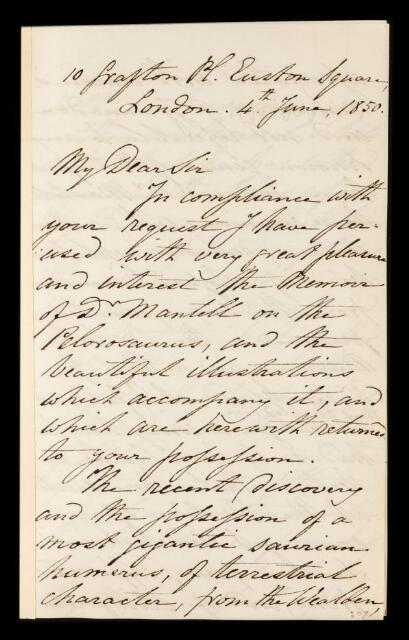 10 Grafton Pl. Euston Square,
London. 4th June, 1850.
My Dear Sir
In compliance with
your request I have per-
used with very great pleasure
and interest the Memoir
of Dr. Mantell on the
Pelorosaurus, and the
beautiful illustrations
which accompany it, and
which are herewith returned
to your possession.
The recent discovery
and the possession of a
most gigantic saurian
humerus, of terrestrial
character, from the Wealden,